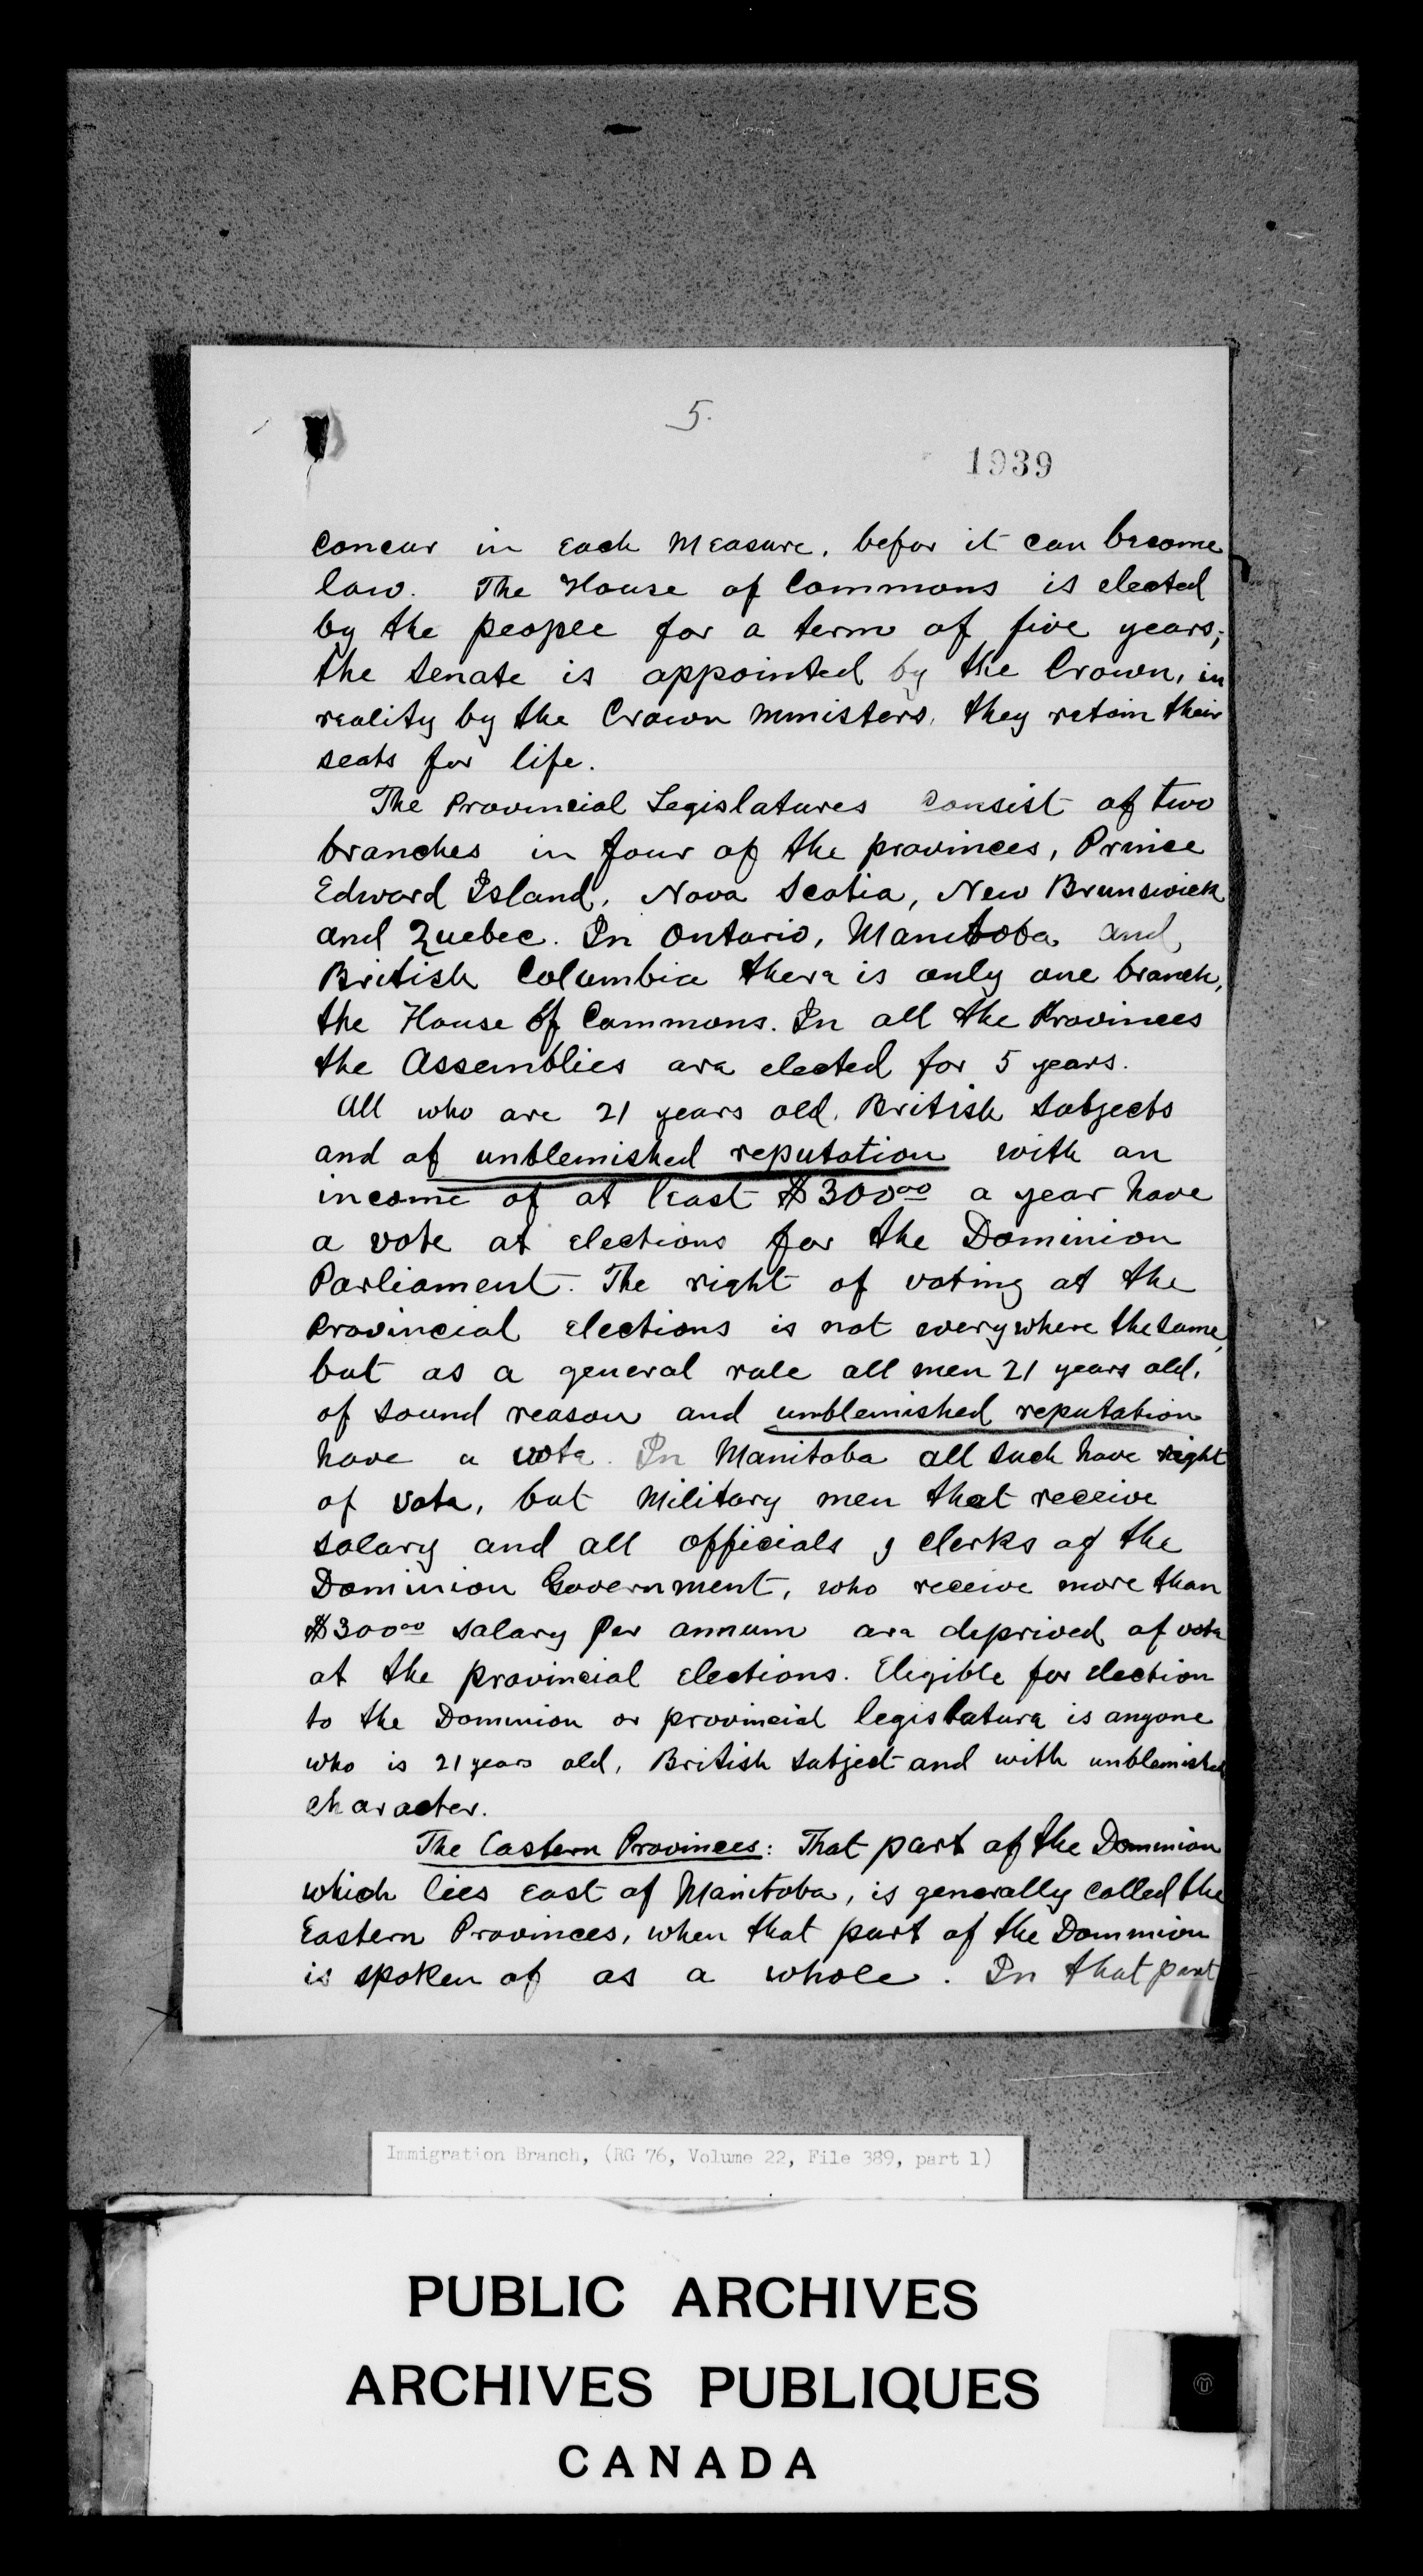 5.
1939
concur in each measure, befor it can become
law. The House of Commons is elected
by the people for a term of five years;
the Senate is appointed by the Crown, in
reality by the Crown Ministers, they retain their
seats for life.
The Provincial Legislatures consist of two
branches in four of the provinces, Prince
Edward Island, Nova Scotia, New Brunswick
and Quebec. In Ontario, Manitoba and
British Columbia there is only one branch,
the House of Commons. In all the Provinces
the Assemblies are elected for 5 years.
All who are 21 years old, British Subjects
and of unblemished reputation with an
income of at least $300.00 a year have
a vote at elections for the Dominion
Parliament. The right of voting at the
Provincial elections is not everywhere the same,
but as a general rule all men 21 years old,
of sound reason and unblemished reputation
have a vote. In Manitoba all such have right
of vote, but Military men that receive
salary and all officials & clerks of the
Dominion Government, who receive more than
$300.00 salary per annum are deprived of vote
at the provincial elections. Eligible for election
to the Dominion or provincial legislature is anyone
who is 21 years old, British subject and with unblemished
character.
The Eastern Provinces: That part of the Dominion
which lies east of Manitoba, is generally called the
Eastern Provinces, when that part of the Dominion
is spoken of as a whole. In that part
Immigration Branch, (RG 76, Volume 22, File 389, part 1)
PUBLIC ARCHIVES
ARCHIVES PUBLIQUES
CANADA